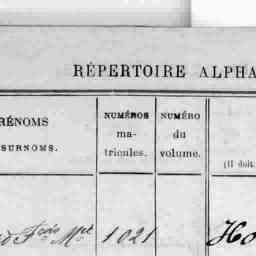 RÉPERTOIRE ALPHA
RÉNOMS
SURNOMS.
NUMÉROS
ma-
tricules.
NUMÉRO
du
volume.
(Il doit
d Fçois Mel 1021 Ho